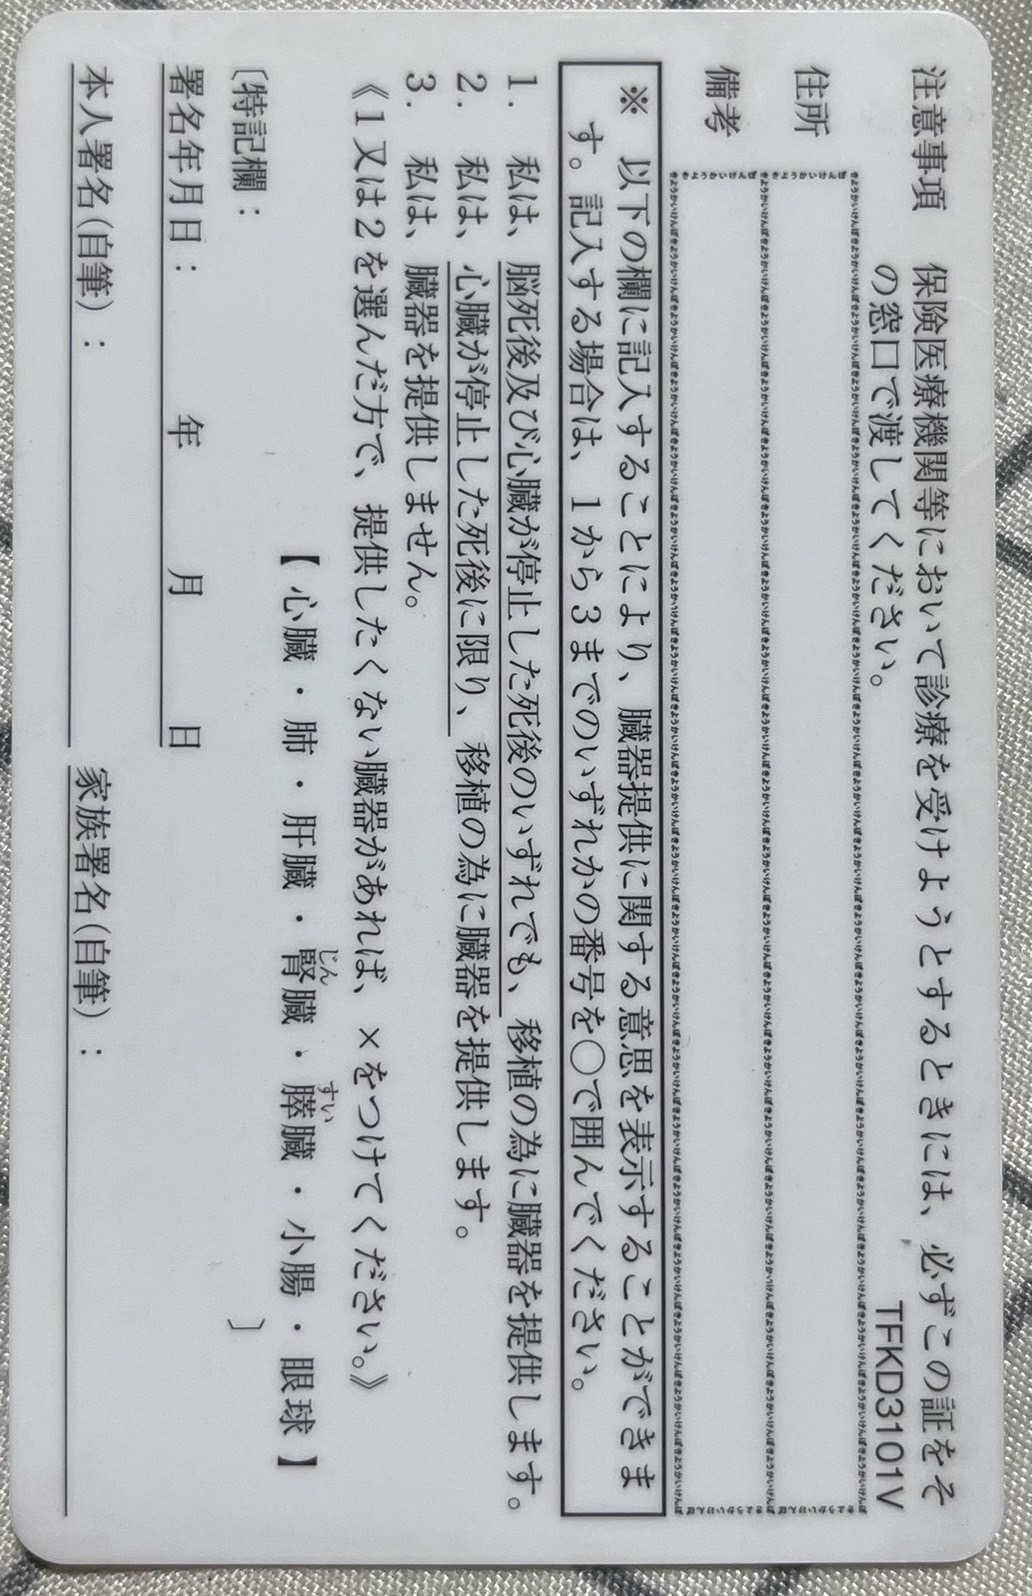 注意事項　保険医療機関等において診療を受けようとするときには、必ずこの証をそ
の窓口で渡してください。
TFKD3101V
住所
備考
※　以下の欄に記入することにより、臓器提供に関する意思を表示することができま
す。記入する場合は、1から3までのいずれかの番号を○で囲んでください。
1.　私は、脳死後及び心臓が停止した死後のいずれでも、移植の為に臓器を提供します。
2.　私は、心臓が停止した死後に限り、移植の為に臓器を提供します。
3.　私は、臓器を提供しません。
《1又は2を選んだ方で、提供したくない臓器があれば、×をつけてください。》
【 心臓 ・ 肺 ・ 肝臓 ・ 腎臓 ・ 膵臓 ・ 小腸 ・ 眼球 】
じん　すい
〔特記欄：　〕
署名年月日：　年　月　日
本人署名(自筆)：　家族署名(自筆)：